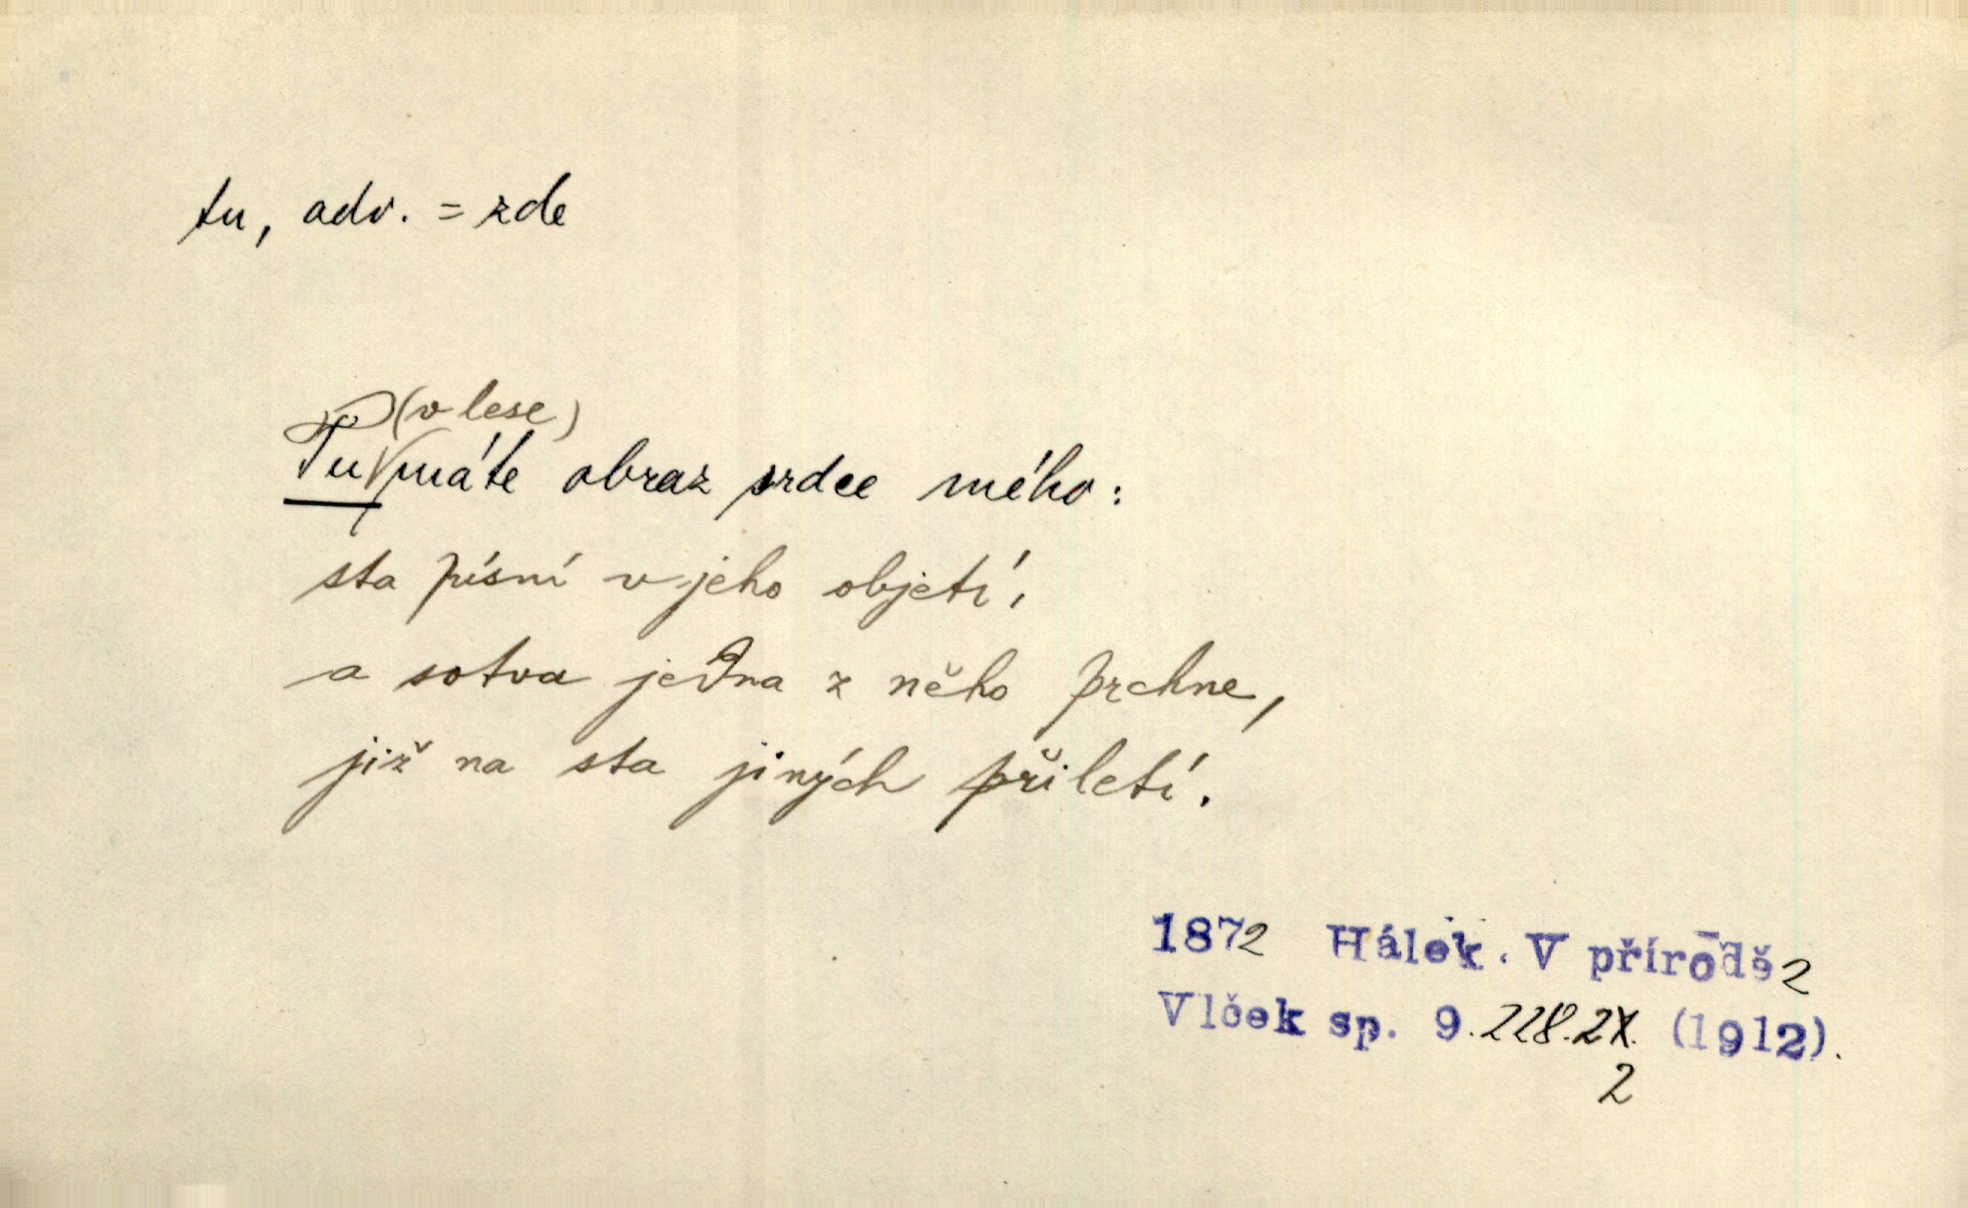 tu, adv. = zde
(v lese)
Tu máte obraz srdce mého:
sta písní v jeho objetí,
a sotva jedna z něho prchne,
již na sta jiných přiletí.
1872 Hálek. V přírodě 2
Vlček sp. 9. 228. 2X. (1912).
2